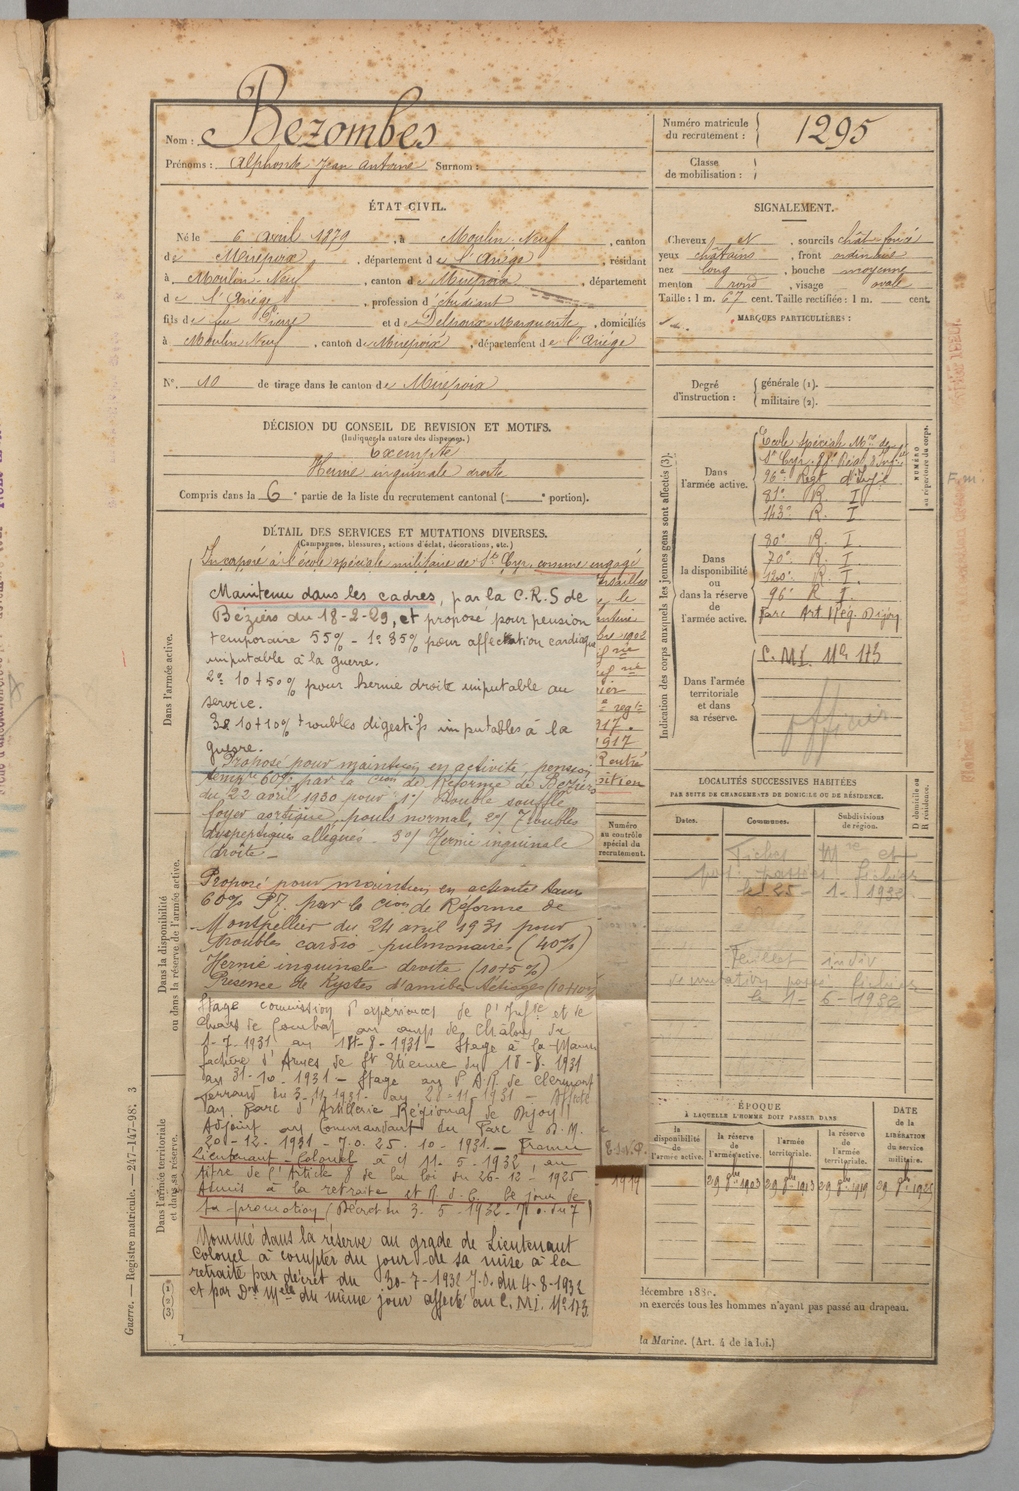 Nom : Bezombes
Prénoms : Alphonse Jean Antoine Surnom :
Numéro matricule du recrutement : 1295
Classe de mobilisation :
ÉTAT CIVIL.
Né le 6 Avril 1879, à Moulin-Neuf, canton
de Mirepoix, département de l'Ariége, résidant
à Moulin-Neuf, canton de Mirepoix, département
de l'Ariége, profession d'étudiant
fils de feu Pierre et de Marguerite, domiciliés
à Moulin Neuf, canton de Mirepoix, département de l'Ariége
N° 10 de tirage dans le canton de Mirepoix
SIGNALEMENT.
Cheveux et, sourcils chât. foncé
yeux châtains, front ordinaire
nez long, bouche moyenne
menton rond, visage ovale
Taille : 1 m. 67 cent. Taille rectifiée : 1 m. cent.
MARQUES PARTICULIÈRES :
Degré d'instruction : générale (1).
militaire (2).
DÉCISION DU CONSEIL DE REVISION ET MOTIFS.
(Indiquer la nature des dispenses.)
Exempté
Hernie inguinale droite
Compris dans la 6e partie de la liste du recrutement cantonal ( e portion).
DÉTAIL DES SERVICES ET MUTATIONS DIVERSES.
(Campagnes, blessures, actions d'éclat, décorations, etc.)
Incorporé à l'école spéciale militaire de St Cyr comme engagé
Maintenu dans les cadres, par la C.R.S de
Béziers du 18-2-29, et proposé pour pension
temporaire 55% - 1° 35% pour affectation cardiaque
imputable à la guerre.
2° 10+50% pour hernie droite imputable au
service.
3° 10+10% troubles digestifs imputables à la
guerre.
Proposé pour maintien en activité pension
temp.re 60% par la Cion de Réforme de Béziers
du 22 avril 1930 pour 1°/ Double souffle
foyer aortique, pouls normal, 2°/ Troubles
dyspeptiques allégués 3°/ Hernie inguinale
droite -
Proposé pour maintien en activité taux
60% P.T. par la Cion de Réforme de
Montpellier du 24 avril 1931 pour
troubles cardio-pulmonaires (40%)
Hernie inguinale droite (10+5%)
Présence de Kystes d'amibes (10+10%)
Stage commission d'expériences de l'Infrie et de
Chars de Combat au camp de Châlons du
1-7-1931 au 18-8-1931 - Stage à la Manu
facture d'Armes de St Etienne du 18-8-1931
au 31-10-1931 - Stage au P.A.R. de Clermont
ferrand du 3-11-1931 au 28-11-1931 - Affecté
au Parc d'Artillerie Régional de Dijon
Adjoint au Commandant du Parc - D.M.
20-12-1931 - J.O. 25-10-1931. - Promu
Lieutenant-Colonel à c/ 11-5-1932, au
titre de l'Article 8 de la loi du 26-12-1925
Admis à la retraite et R.d.C. le jour de
sa promotion (Décret du 3-5-1932 - J.O. du 7)
Nommé dans la réserve au grade de Lieutenant
Colonel à compter du jour de sa mise à la
retraite par décret du 30-7-1932 J.O. du 4-8-1932
et par Don Melle du même jour affecté au C.M.I. N° 173.
Indication des corps auxquels les jeunes gens sont affectés (3).
Dans l'armée active.
Ecole spéciale Mre de
St Cyr.
96e Régt d'Infie
81e R. I
143e R. I
Dans la disponibilité ou dans la réserve de l'armée active.
80e R. I.
70e R. I.
120e R. I.
96e R. I.
Parc Art. Rég. Dijon
Dans l'armée territoriale et dans sa réserve.
C. M.I. N° 173
officier
NUMÉRO au répertoire du corps.
F.m.
LOCALITÉS SUCCESSIVES HABITÉES
PAR SUITE DE CHANGEMENTS DE DOMICILE OU DE RÉSIDENCE.
Dates. Communes. Subdivisions de région.
D domicile ou R résidence.
Fiches Mre et
passées fichier
le 25-1-1932
Feuillet indiv
de mutation passé fichier
le 1-6-1932
Numéro au contrôle spécial du recrutement.
ÉPOQUE
À LAQUELLE L'HOMME DOIT PASSER DANS
la disponibilité de l'armée active.
la réserve de l'armée active.
l'armée territoriale.
la réserve de l'armée territoriale.
DATE de la LIBÉRATION du service militaire.
29 8bre 1903
29 8bre 1913
29 8bre 1919
1919
Dans l'armée active.
Dans la disponibilité ou dans la réserve de l'armée active.
Dans l'armée territoriale et dans sa réserve.
décembre 188
on exercés tous les hommes n'ayant pas passé au drapeau.
la Marine. (Art. 4 de la loi.)
Guerre. — Registre matricule. — 247-147-98. 3